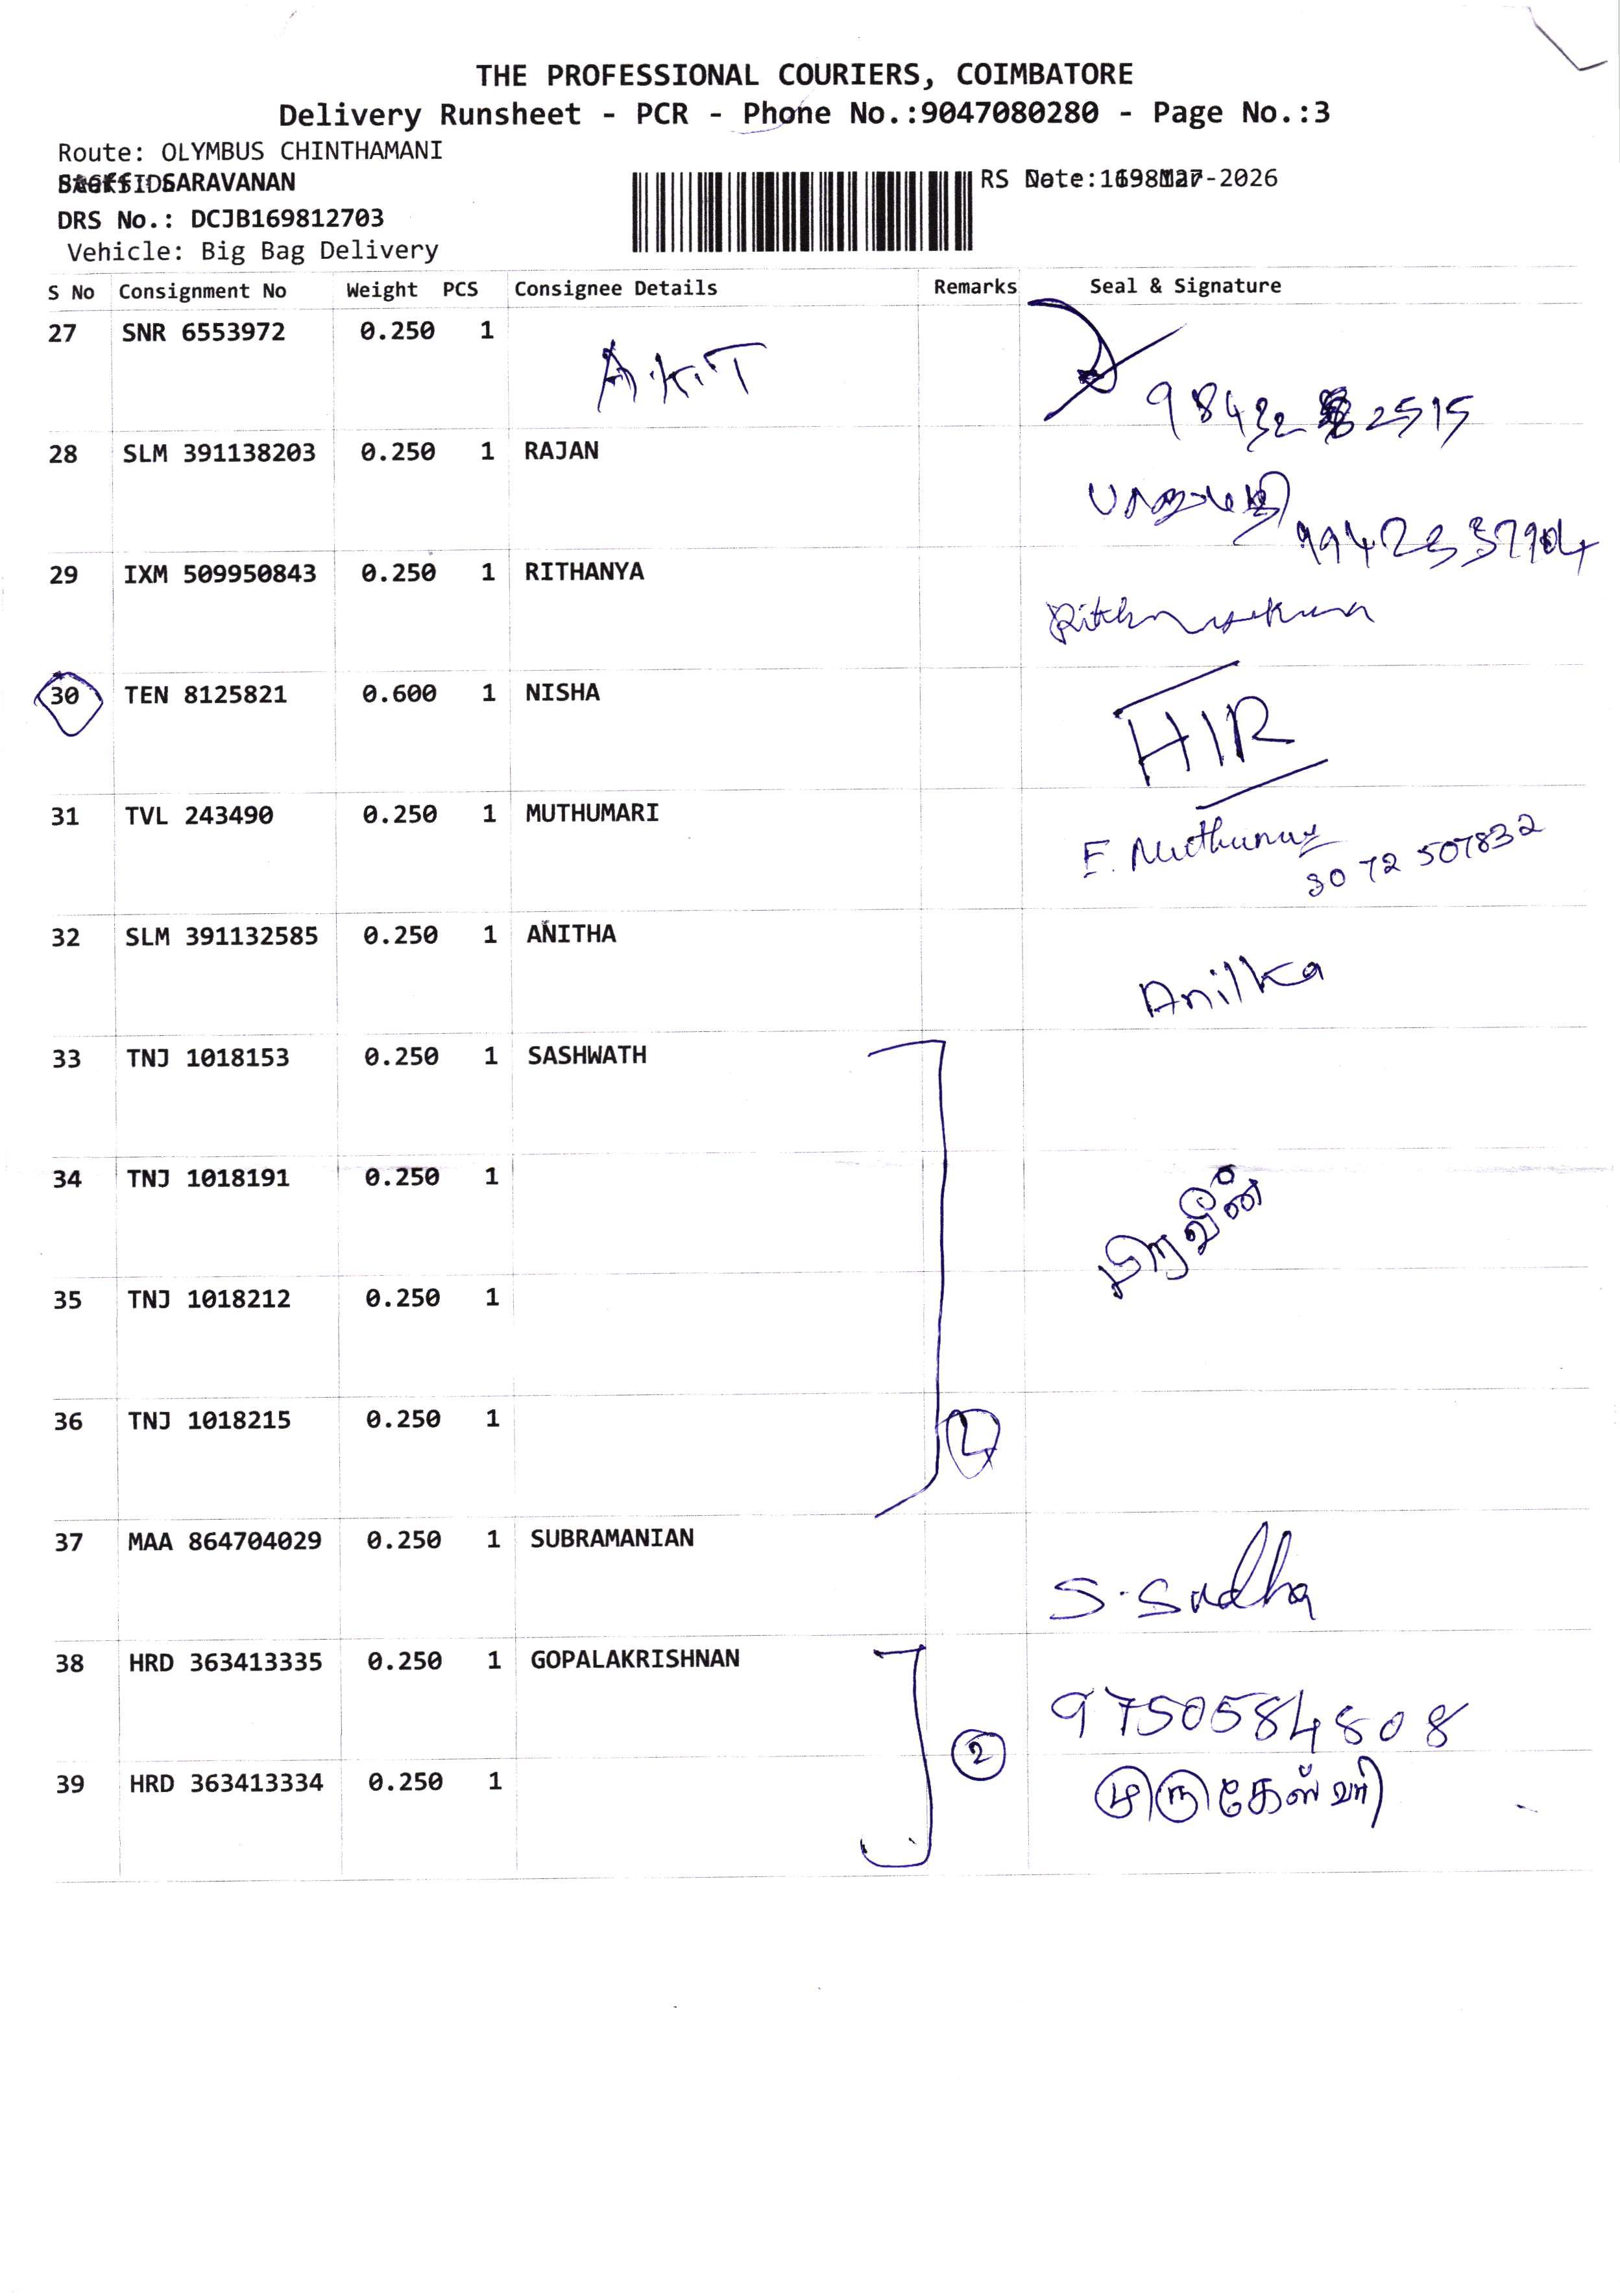 THE PROFESSIONAL COURIERS, COIMBATORE
Delivery Runsheet - PCR - Phone No.:9047080280 - Page No.:3
Route: OLYMBUS CHINTHAMANI
SARAVANAN
RS
-2026
DRS No.: DCJB169812703
Vehicle: Big Bag Delivery
S No Consignment No Weight PCS Consignee Details Remarks Seal & Signature
27 SNR 6553972 0.250 1 A.K.T
2515
28 SLM 391138203 0.250 1 RAJAN
29 IXM 509950843 0.250 1 RITHANYA
30 TEN 8125821 0.600 1 NISHA HIR
31 TVL 243490 0.250 1 MUTHUMARI
72 507832
32 SLM 391132585 0.250 1 ANITHA
33 TNJ 1018153 0.250 1 SASHWATH
34 TNJ 1018191 0.250 1
35 TNJ 1018212 0.250 1
36 TNJ 1018215 0.250 1
37 MAA 864704029 0.250 1 SUBRAMANIAN S. Sudha
38 HRD 363413335 0.250 1 GOPALAKRISHNAN
9750584808
2
39 HRD 363413334 0.250 1 முருகேஸ்வரி